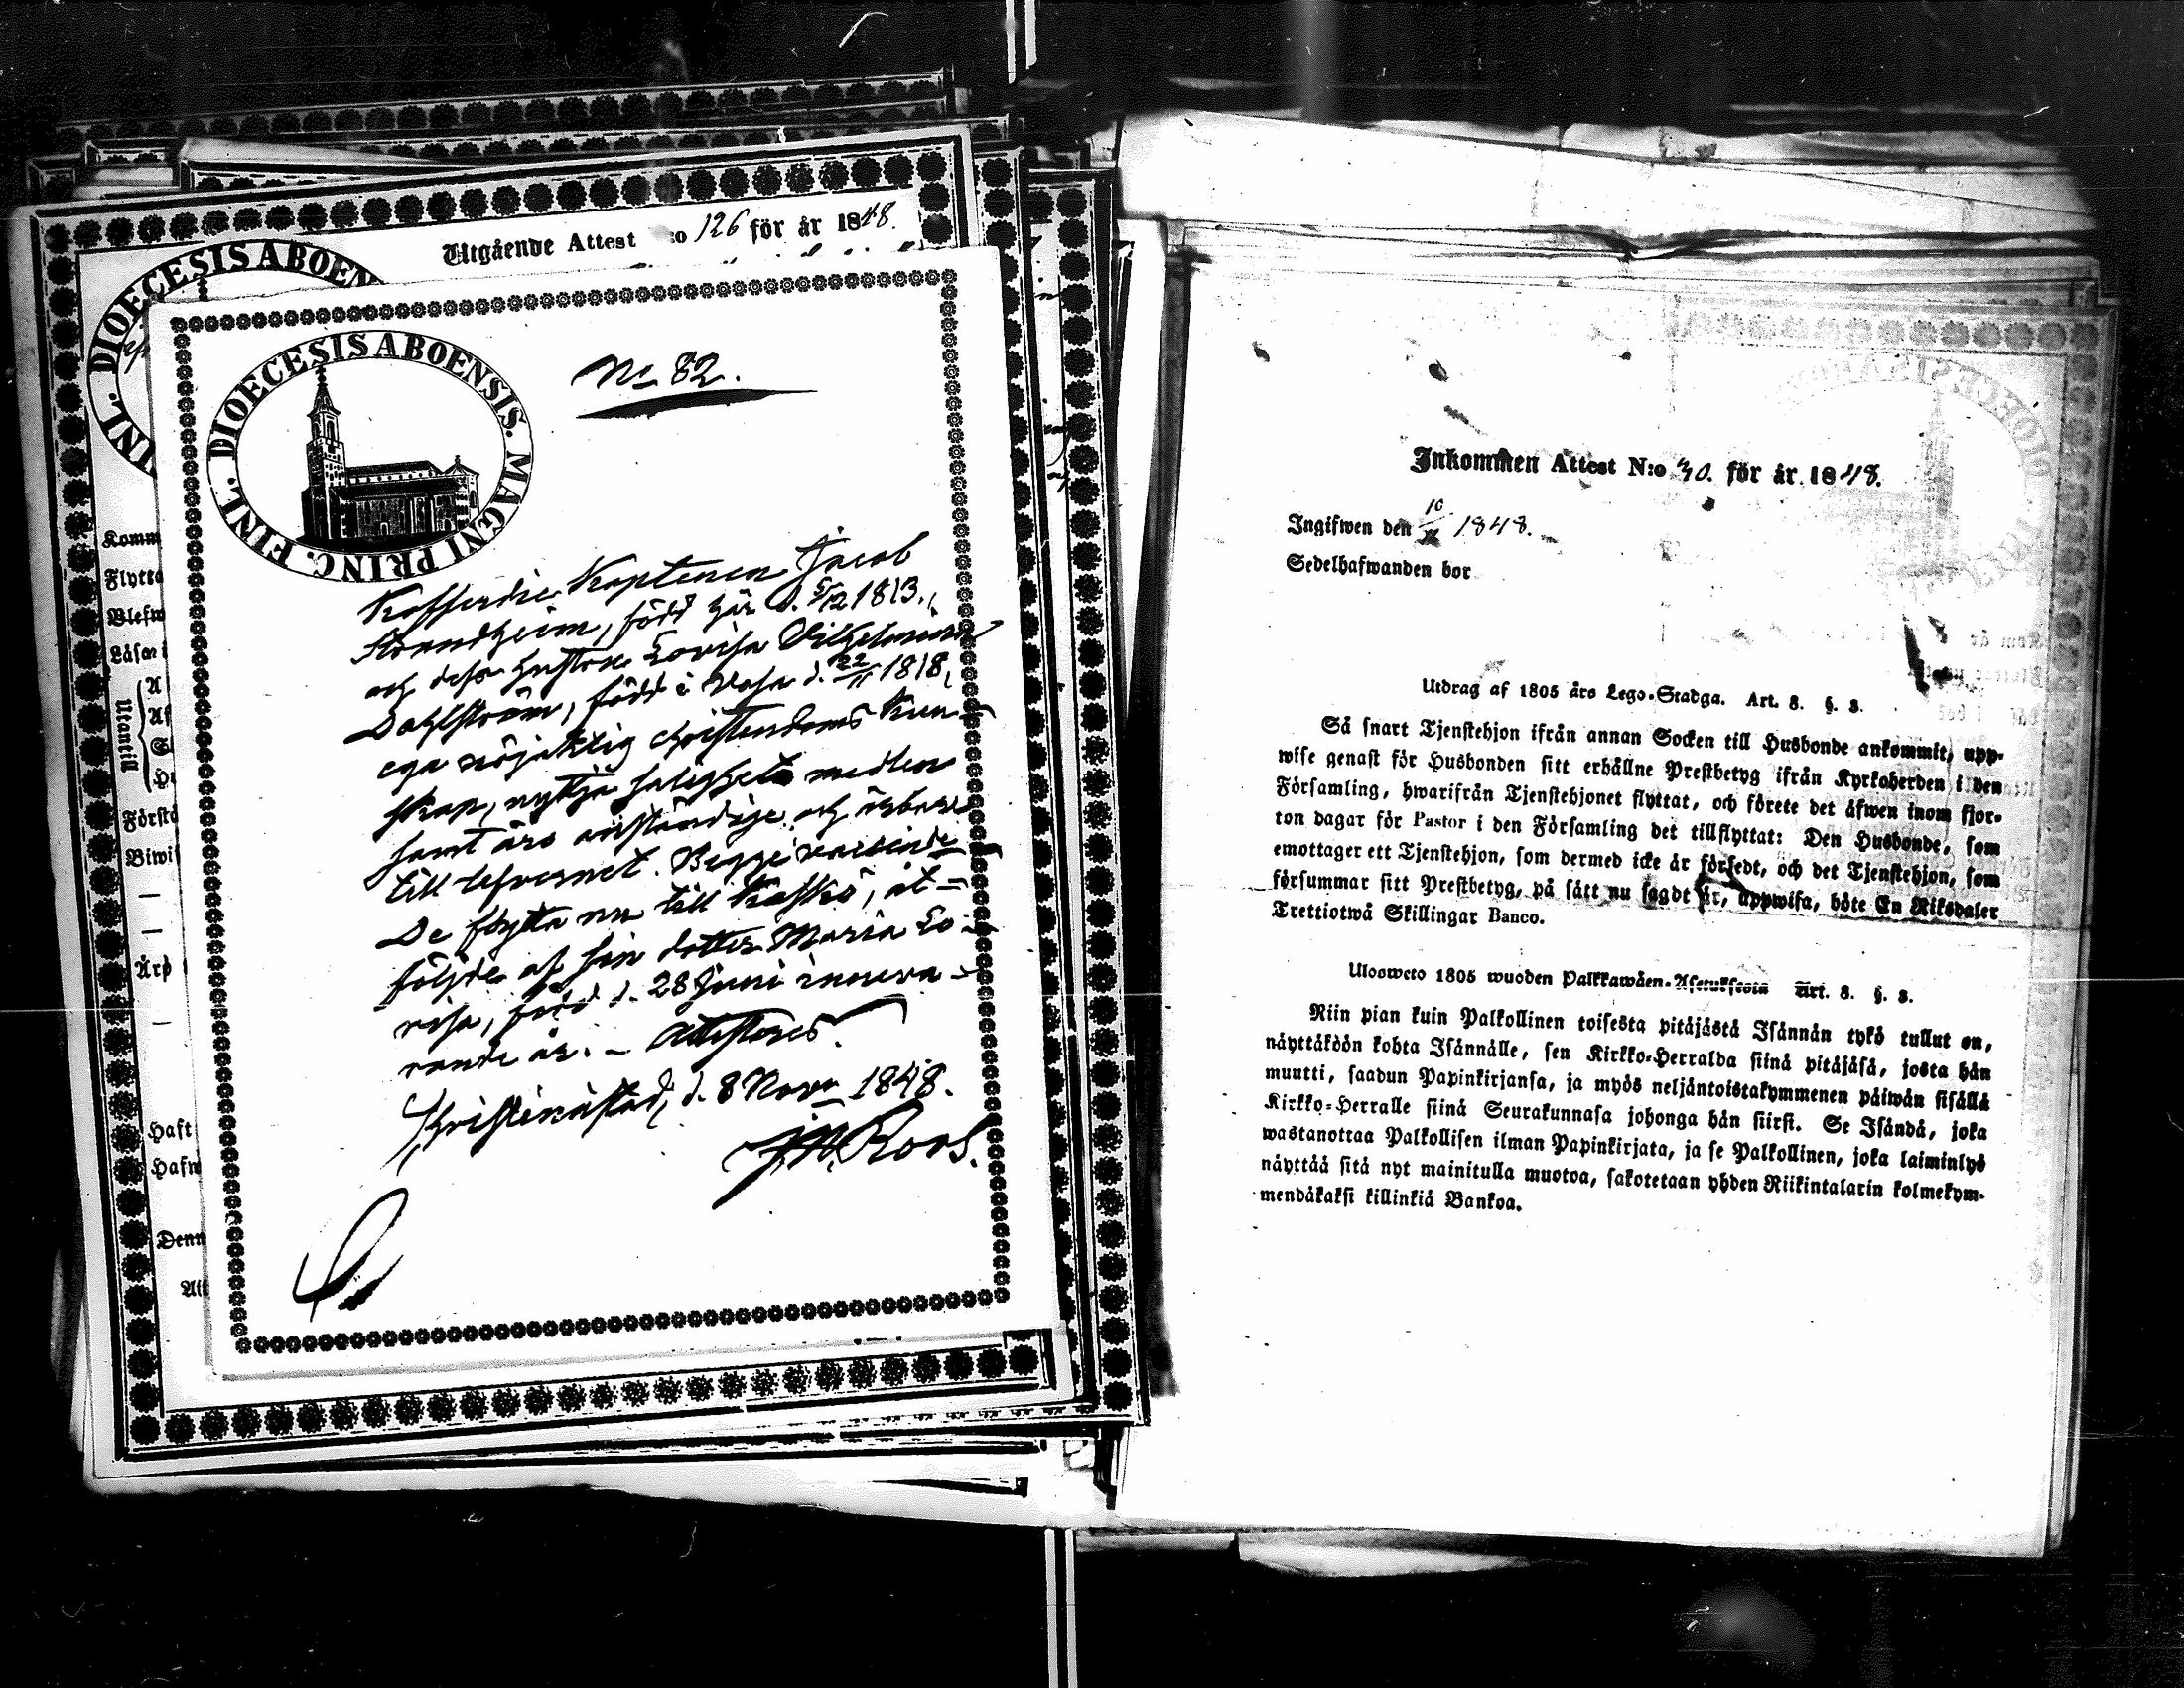 Utgående Attest :o 126 för år 1848.
DIOECESIS ABOEN
INL.
Komm
Flytta
Blefw
Läsar i
Utantill
A
Af
S
Hu
Förstå
Biwi
—
—
Ärp
—
Haft
Hafw
Denn
Att
DIOECESIS ABOENSIS. MAGNI PRINC. FINL.
No 82.
Kofferdie Kaptenen Jacob
Strandheim, född här d. 5/12 1813.,
och dess hustru Lovisa Vilhelmina
Dahlström, född i Vasa d. 22/11 1818,
ega nöjaktig christendoms kun-
skap, nyttja salighets medlen
samt äro anständige och ärbare
till lefvernet. Begge vaccinerade
De flytta nu till Kaskö, åt-
följde af sin dotter Maria Lo-
visa, född d. 28 Juni inneva-
rande år. – Attesteras.
Christinæstad, d. 8 Nov. 1848.
J. M. Roos.
Inkommen Attest N:o 30. för år 1848.
Ingifwen den 10/11 1848.
Sedelhafwanden bor
Utdrag af 1805 års Lego-Stadga. Art. 8. §. 3.
Så snart Tjenstehjon ifrån annan Socken till Husbonde ankommit, upp-
wise genast för Husbonden sitt erhållne Prestbetyg ifrån Kyrkoherden i den
Församling, hwarifrån Tjenstehjonet flyttat, och förete det äfwen inom fjor-
ton dagar för Pastor i den Församling det tillflyttat: Den Husbonde, som
emottager ett Tjenstehjon, som dermed icke är försedt, och det Tjenstehjon, som
försummar sitt Prestbetyg, på sätt nu sagdt är, uppwisa, böte En Riksdaler
Trettiotwå Skillingar Banco.
Uloswето 1805 wuoden Palkkawäen-Asetuksesta Art. 8. §. 3.
Niin pian kuin Palkollinen toisesta pitäjästä Isännän tykö tullut on,
näyttäköön kohta Isännälle, sen Kirkko-Herralda siinä pitäjäsä, josta hän
muutti, saadun Papinkirjansa, ja myös neljäntoistakymmenen päiwän sisällä
Kirkko-Herralle siinä Seurakunnasa johonga hän siirsi. Se Isändä, joka
wastanottaa Palkollisen ilman Papinkirjata, ja se Palkollinen, joka laiminlyö
näyttää sitä nyt mainitulla muotoa, sakotetaan yhden Riikintalarin kolmekym-
mendäkaksi killinkiä Bankoa.